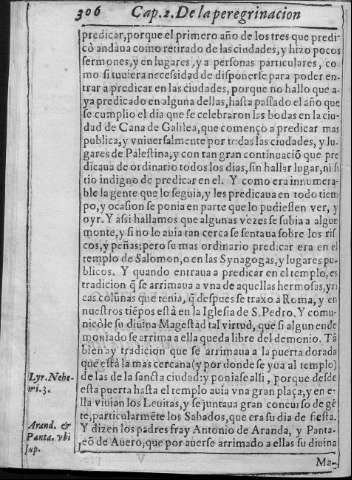 306 Cap. 2. De la peregrinacion
predicar, porque el primero año de los tres que predi-
cò andaua como retirado de las ciudades, y hizo pocos
sermones, y en lugares, y a personas particulares, co-
mo si tuuiera necessidad de disponerse para poder en-
trar a predicar en las ciudades, porque no hallo que a-
ya predicado en alguna dellas, hasta passado el año que
se cumplio el dia que se celebraron las bodas en la ciu-
dad de Cana de Galilea, que començo a predicar mas
publica, y vniuersalmente por todas las ciudades, y lu-
gares de Palestina, y con tan gran continuaciõ que pre
dicaua de ordinario todos los dias, sin hallar lugar, ni si
tio indigno de predicar en el. Y como era innumera-
ble la gente que lo seguia, y les predicaua en todo tiem
po, y ocasion se ponia en parte que lo pudiessen ver, y
oyr. Y assi hallamos que algunas vezes se subia a algun
monte, y si no lo auia tan cerca se sentaua sobre los ris
cos, y peñas: pero su mas ordinario predicar era en el
templo de Salomon, o en las Synagogas, y lugares pu-
blicos. Y quando entraua a predicar en el templo, es
tradicion q̃ se arrimaua a vna de aquellas hermosas, y ri
cas colũnas que tenia, q̃ despues se traxo a Roma, y en
nuestros tiẽpos està en la Iglesia de S. Pedro. Y comu-
nicòle su diuina Magestad tal virtud, que si algun ende
moniado se arrima a ella queda libre del demonio. Tã
bien ay tradicion que se arrimaua a la puerta dorada
que està la mas cercana (y por donde se yua al templo)
de las de la sancta ciudad: y poniase alli, porque desde
esta puerta hasta el templo auia vna gran plaça, y en e-
lla viuian los Leuitas, y se juntaua gran concurso de gẽ
te, particularmẽte los Sabados, que era su dia de fiesta.
Y dizen los padres fray Antonio de Aranda, y Panta-
eõ de Auero, que por auerse arrimado a ellas su diuina
Ma-
Lyr. Nehe-
mi. 3.
Arand. &
Panta. vbi
sup.